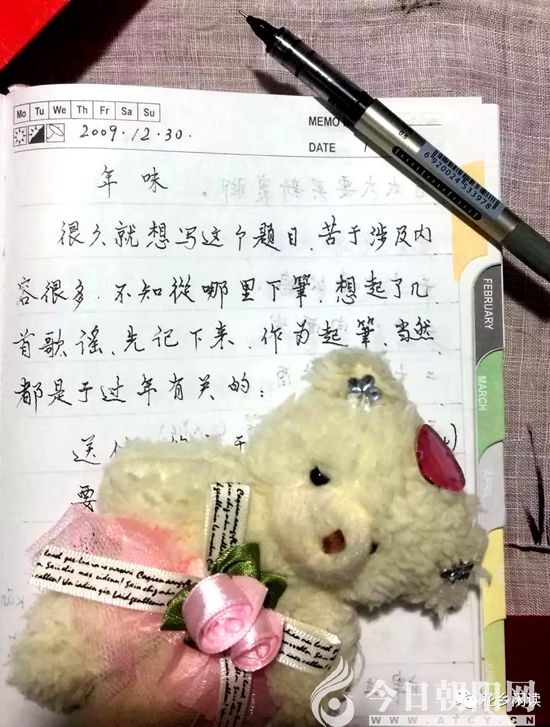 Mo Tu We Th Fr Sa Su
2009.12.30.
MEMO
DATE
年味
很久就想写这个题目,苦于涉及内
容很多,不知從哪里下筆,想起了几
首歌谣,先记下来,作为起筆,当然
都是于过年有关的:
送
要
0.5
6920024533978
FEBRUARY
MARCH
APRIL
今日朝阳网
WWW.ATCY.CN
花乡阅读